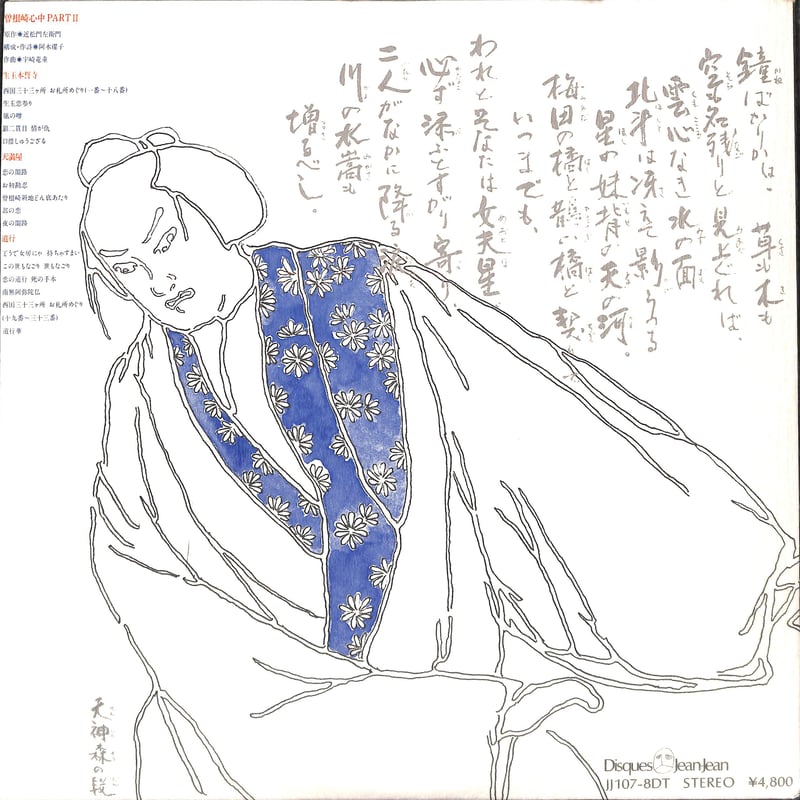 曽根崎心中 PART II
原作●近松門左衛門
構成・作詩●阿木燿子
作曲●宇崎竜童
生玉本誓寺
西国三十三ヶ所 お札所めぐり(一番〜十八番)
生玉恋参り
銀二貫目 情が仇
天満屋
恋の闇路
お初勘忍
曽根崎新地どん底あたり
恋の道行 死の手本
南無阿弥陀仏
西国三十三ヶ所 お札所めぐり
(十九番〜三十三番)
道行華
鐘ばかりかは、草も木も
空も名残りと見上ぐれば、
雲心なき水の面
北斗は冴えて影うつる
星の妹背の天の河。
梅田の橋を鵲の橋と契りて
いつまでも、
われとそなたは女夫星
必ず添ふとすがり寄り
二人がなかに降る涙
川の水嵩も
増るべし。
天神森の段
Disques Jean-Jean
JJ107-8DT STEREO ¥4,800